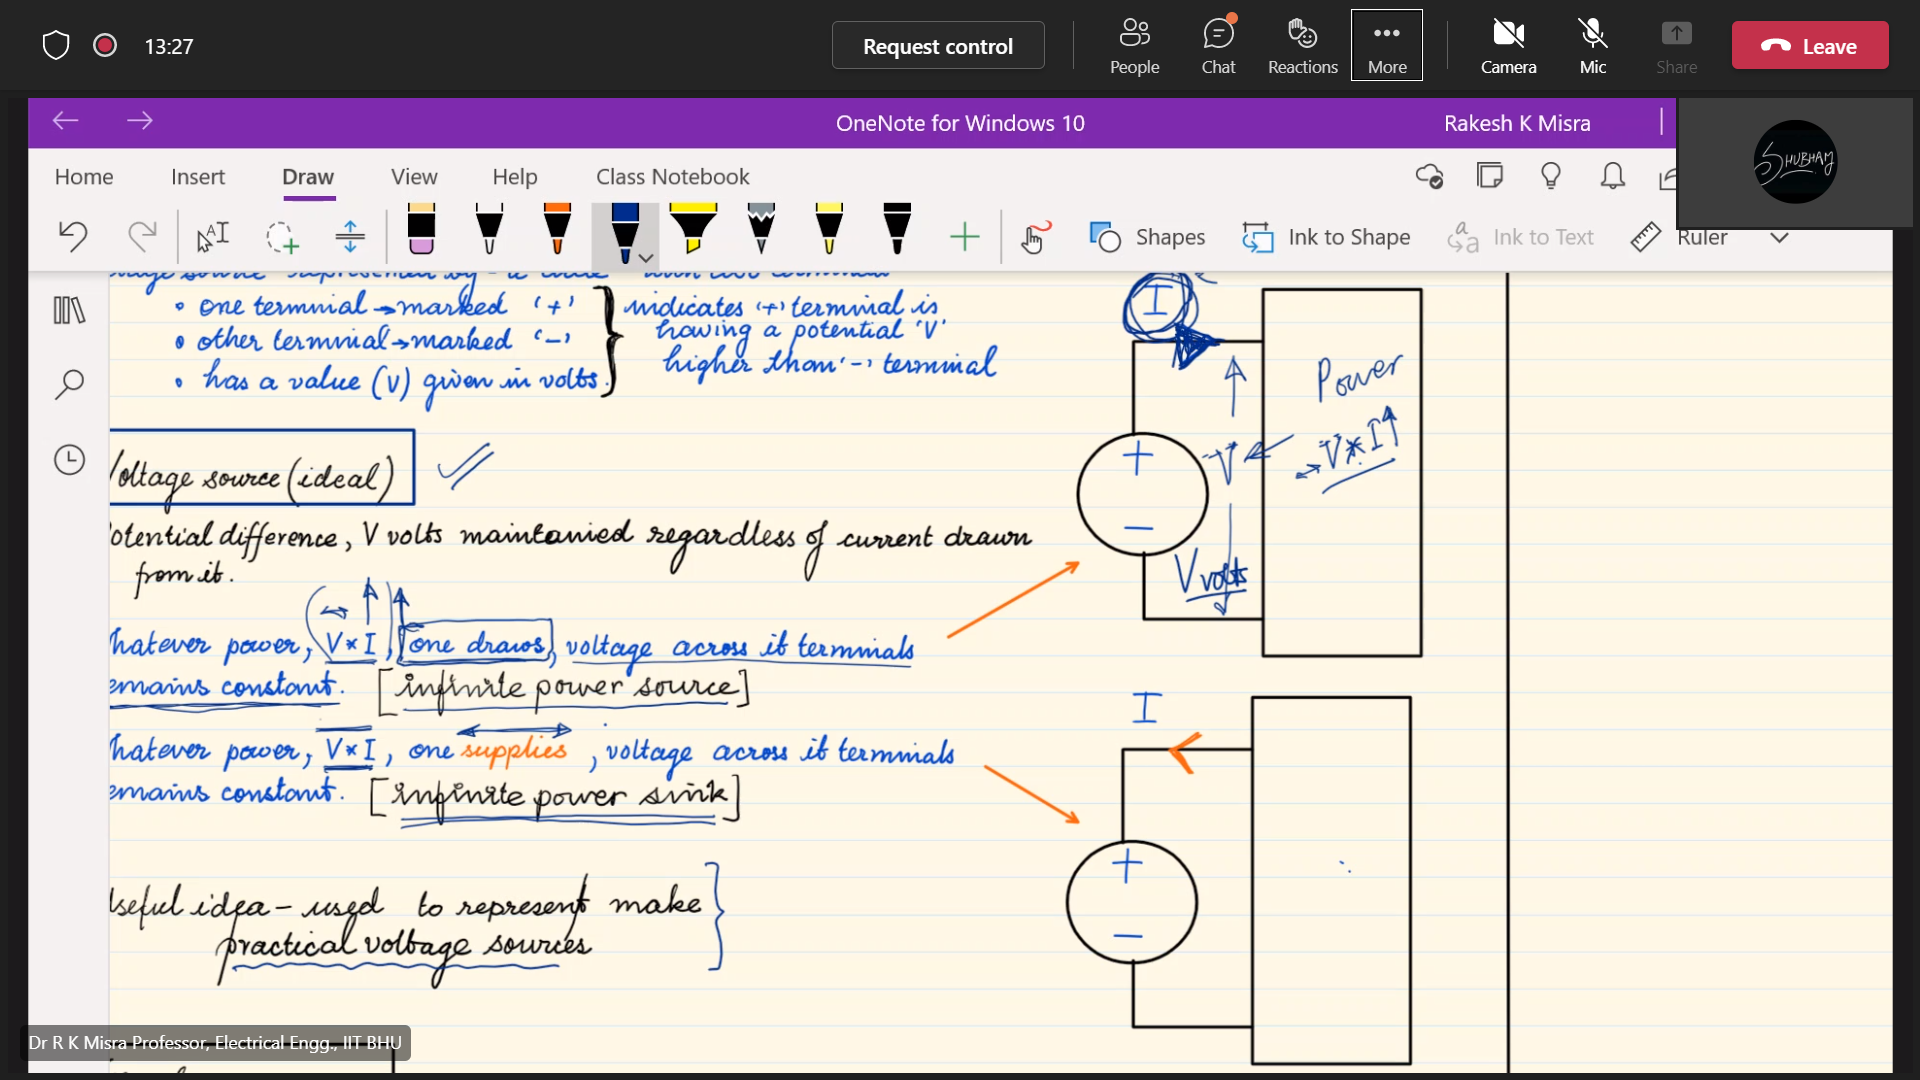 13:27
Request control
People
Chat
Reactions
More
Camera
Mic
Share
Leave
OneNote for Windows 10
Rakesh K Misra
SHUBHAM
Home
Insert
Draw
View
Help
Class Notebook
Shapes
Ink to Shape
Ink to Text
Ruler
source represented by - a with two terminal
• one termnial → marked '+'
• other termnial → marked '-'
• has a value (V) given in volts.
indicates '+' terminal is
having a potential 'V'
higher than '-' terminal
I
Power
V*I
+
V
-
V volts
Voltage source (ideal)
otential difference, V volts maintanied regardless of current drawn
from it.
hatever power, V*I, one draws, voltage across it termnials
emains constant. [infinite power source]
hatever power, V*I, one supplies, voltage across it termnials
emains constant. [infinite power sink]
I
+
-
Useful idea - used to represent make
practical voltage sources
Dr R K Misra Professor, Electrical Engg., IIT BHU